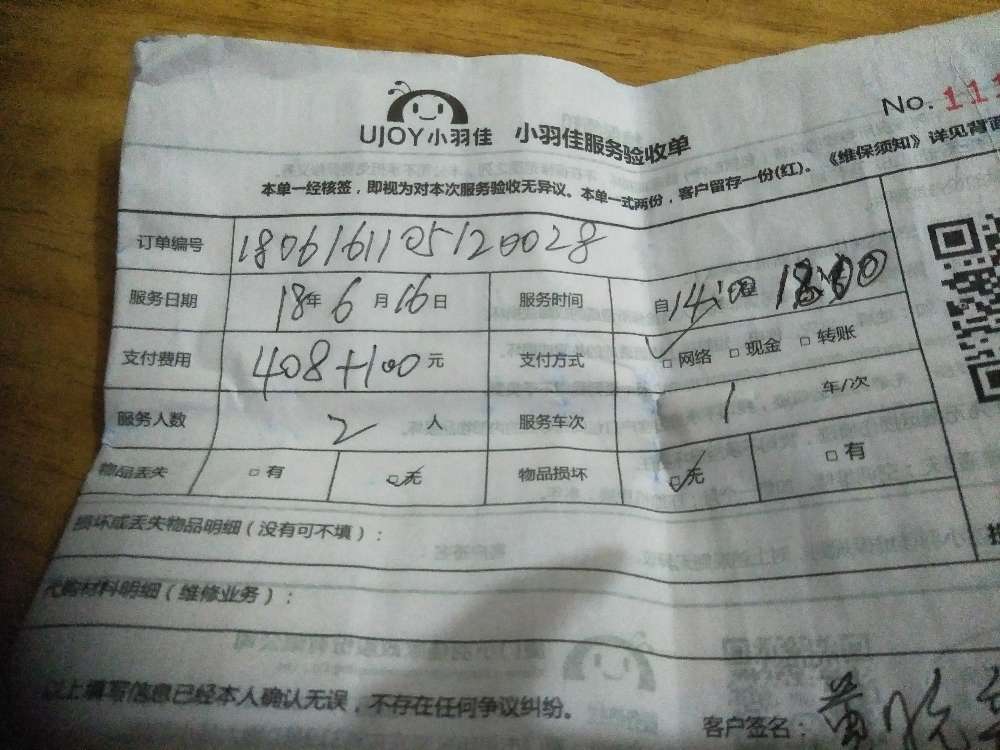 No. 111
UJOY小羽佳 小羽佳服务验收单
本单一经核签，即视为对本次服务验收无异议。本单一式两份，客户留存一份(红)。《维保须知》详见背面
订单编号 1806161105120028
服务日期 18年6月16日 服务时间 自14:00 18:00
支付费用 408+100元 支付方式 □网络 □现金 □转账
服务人数 2人 服务车次 1 车/次
物品丢失 □有 □无 物品损坏 □无 □有
损坏或丢失物品明细（没有可不填）：
代购材料明细（维修业务）：
以上填写信息已经本人确认无误，不存在任何争议纠纷。
客户签名：黄